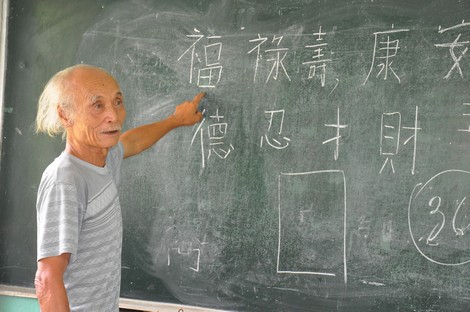 福 祿 壽, 康 安
德 忍 才 財
36